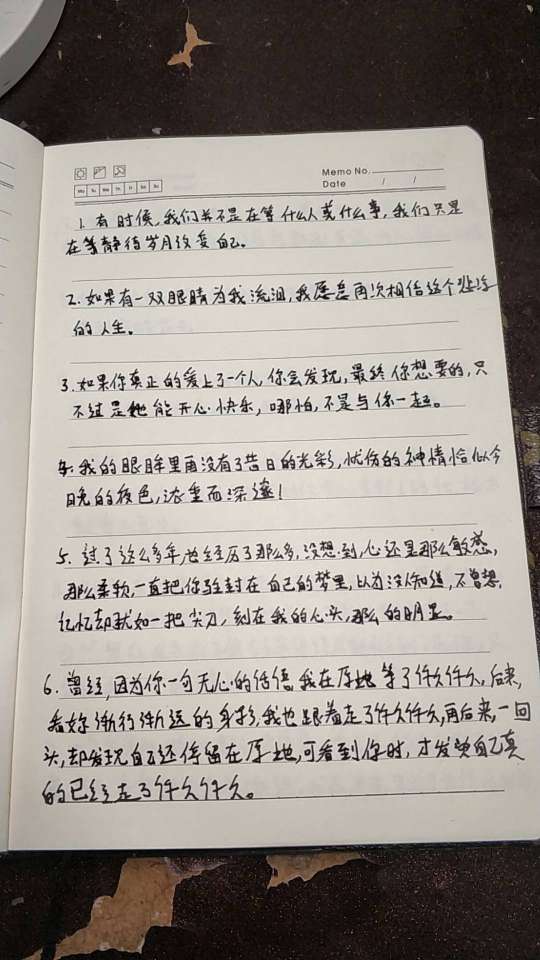 Memo No.
Date / /
Mo Tu We Th Fr Sa Su
1. 有时候,我们并不是在等什么人或什么事,我们只是
在等静待岁月改变自己。
2. 如果有一双眼睛为我流泪,我愿意再次相信这个悲凉
的人生。
3. 如果你真正的爱上了一个人,你会发现,最终你想要的,只
不过是她能开心快乐,哪怕,不是与你一起。
4. 我的眼眸里再没有了昔日的光彩,忧伤的神情恰似今
晚的夜色,浓重而深邃!
5. 过了这么多年,也经历了那么多,没想到,心还是那么敏感,
那么柔软,一直把你尘封在自己的梦里,以为没人知道,不曾想,
记忆却就如一把尖刀,刻在我的心头,那么的明显。
6. 曾经,因为你一句无心的话语,我在原地等了仟久仟久,后来,
看妳渐行渐远的身影,我也跟着走了仟久仟久,再后来,一回
头,却发现自己还停留在原地,可看到你时,才发觉自己真
的已经走了仟久仟久。